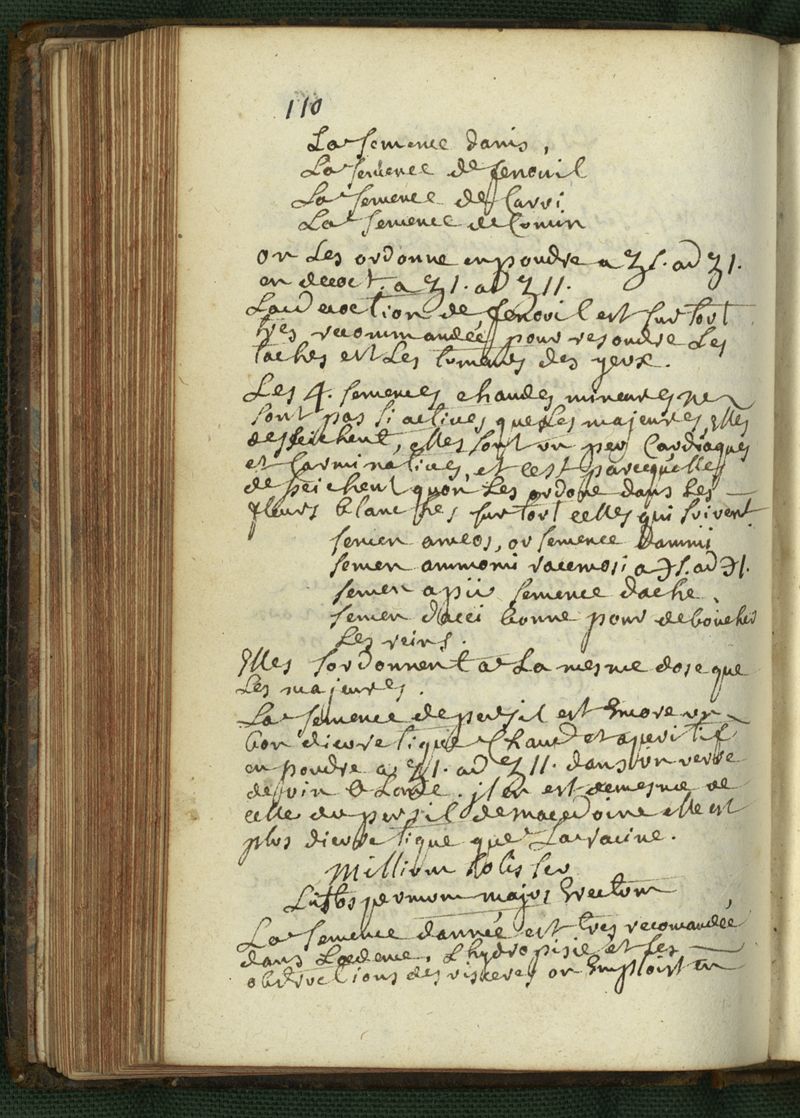 110
La semence danis,
La semence de fenouil
La semence de Carvi
La semence de Comin
on Les ordonne en poudre a ʒ s. ad ʒ 1.
en decoct. a ʒ 1. ad ʒ 11.
La decoction de fenoüil est sur tout
tres recommandée pour resoudre Les
taches est Les tumeurs des yeux.
Les 4. semences chaudes mineures ne
sont pas si actives que Les majeures, Elles
desseichent, elles sont un peu Cardiaques
et Carminatives, et cest parcequelles
desseichent quon Les ordone dans Les
fleurs blanches sur tout celles qui suivent
semen ameos, ou semence dammi
semen ammomi racemosi a ℈ s. ad ℈ 1.
semen apii semence dache.
semen dauci bonne pour deboucher
Les reins.
Elles sordonnent a La mesme dose que
Les majeures.
La semence de persil est Encore un
bon dieuretique Chaud et aperitif
en poudre a ʒ 1. ad ʒ 11. dans un verre
de vin de Londe. jl en est de mesme de
celle du persil de macedoine elle est
plus dieuretique que La racine.
Millium solis seu
Lithospermum majus Erectum
La semence dannée est tres recomandée
dans Lœdeme, Lhydropisie et Les
obstructions des visceres on Emploist en